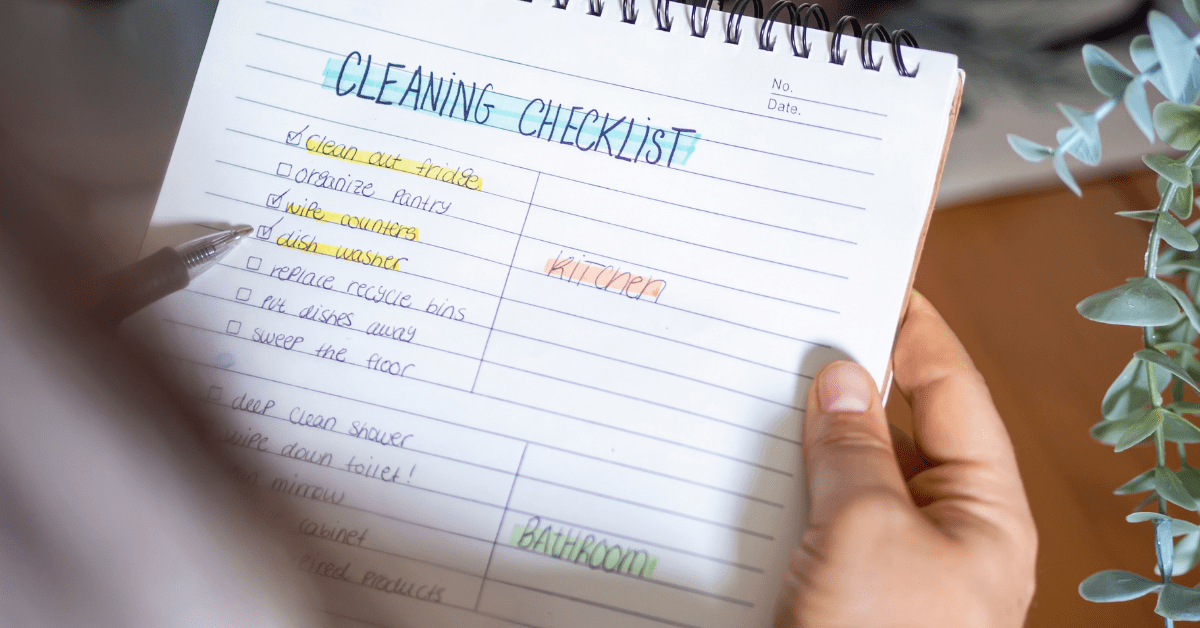 No.
Date.
CLEANING CHECKLIST
Clean out fridge
organize pantry
wipe counters
dish washer
replace recycle bins
put dishes away
sweep the floor
KITCHEN
deep clean shower
wipe down toilet!
mirrow
cabinet
products
BATHROOM